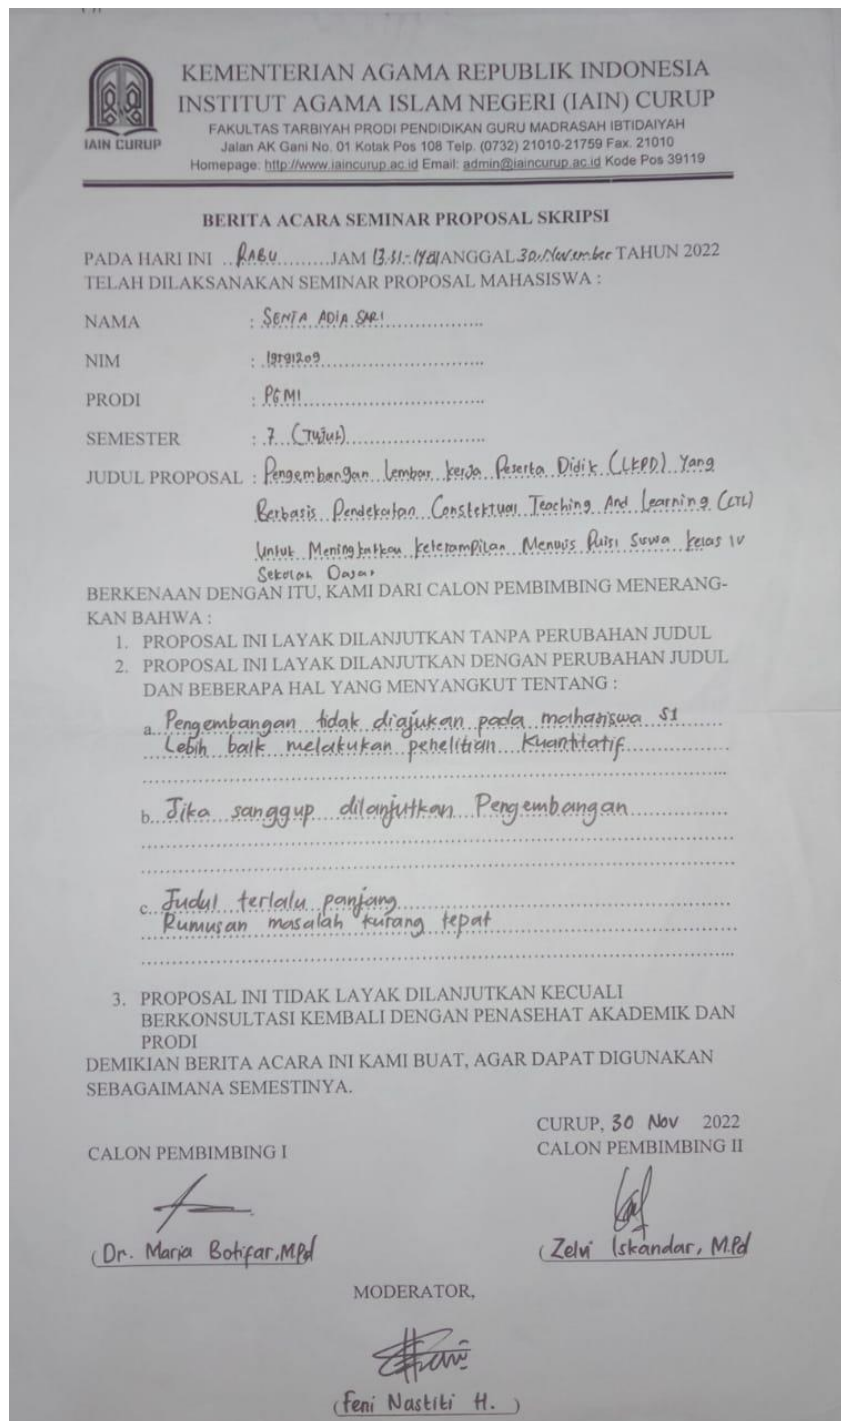 IAIN CURUP
KEMENTERIAN AGAMA REPUBLIK INDONESIA
INSTITUT AGAMA ISLAM NEGERI (IAIN) CURUP
FAKULTAS TARBIYAH PRODI PENDIDIKAN GURU MADRASAH IBTIDAIYAH
Jalan AK Gani No. 01 Kotak Pos 108 Telp. (0732) 21010-21759 Fax. 21010
Homepage: http://www.iaincurup.ac.id Email: admin@iaincurup.ac.id Kode Pos 39119
BERITA ACARA SEMINAR PROPOSAL SKRIPSI
PADA HARI INI ..RABU.........JAM TANGGAL 30..November TAHUN 2022
TELAH DILAKSANAKAN SEMINAR PROPOSAL MAHASISWA :
NAMA : SENTA ADIA SARI
NIM : 19591209
PRODI : PGMI
SEMESTER : 7 (Tujuh)
JUDUL PROPOSAL : Pengembangan Lembar kerja Peserta Didik (LKPD) Yang
Berbasis Pendekatan Teaching And Learning (CTL)
Untuk Meningkatkan keterampilan Menulis Puisi Siswa kelas IV
Sekolah Dasar
BERKENAAN DENGAN ITU, KAMI DARI CALON PEMBIMBING MENERANG-
KAN BAHWA :
1. PROPOSAL INI LAYAK DILANJUTKAN TANPA PERUBAHAN JUDUL
2. PROPOSAL INI LAYAK DILANJUTKAN DENGAN PERUBAHAN JUDUL
DAN BEBERAPA HAL YANG MENYANGKUT TENTANG :
a. Pengembangan tidak diajukan pada mahasiswa S1
Lebih baik melakukan penelitian kuantitatif
b. Jika sanggup dilanjutkan Pengembangan
c. Judul terlalu panjang
Rumusan masalah kurang tepat
3. PROPOSAL INI TIDAK LAYAK DILANJUTKAN KECUALI
BERKONSULTASI KEMBALI DENGAN PENASEHAT AKADEMIK DAN
PRODI
DEMIKIAN BERITA ACARA INI KAMI BUAT, AGAR DAPAT DIGUNAKAN
SEBAGAIMANA SEMESTINYA.
CURUP, 30 Nov 2022
CALON PEMBIMBING I CALON PEMBIMBING II
(Dr. Maria Botifar, M.Pd (Zelvi Iskandar, M.Pd
MODERATOR,
(Feni Nastiti H. )